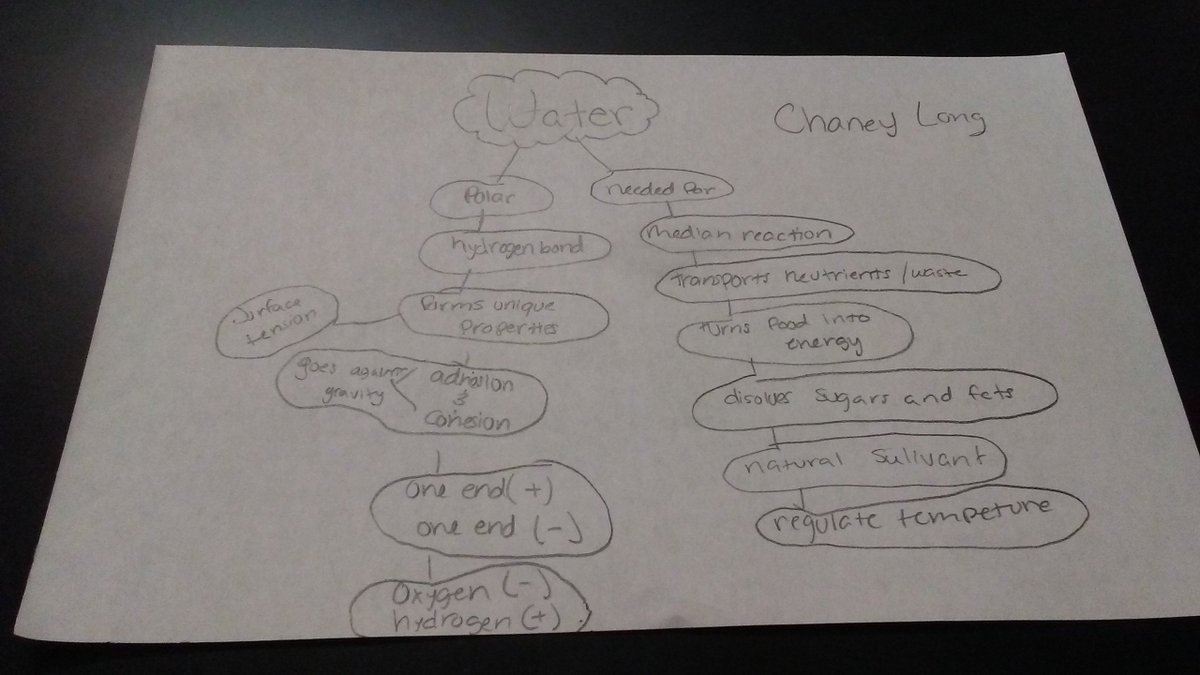 Water
Chaney Long
Polar
hydrogen bond
forms unique
properties
Surface
tension
goes against
gravity
adhesion
&
Cohesion
One end (+)
one end (-)
Oxygen (-)
hydrogen (+)
needed for
median reaction
transports neutrients / waste
turns food into
energy
disolves sugars and fats
natural Sullvant
regulate tempeture